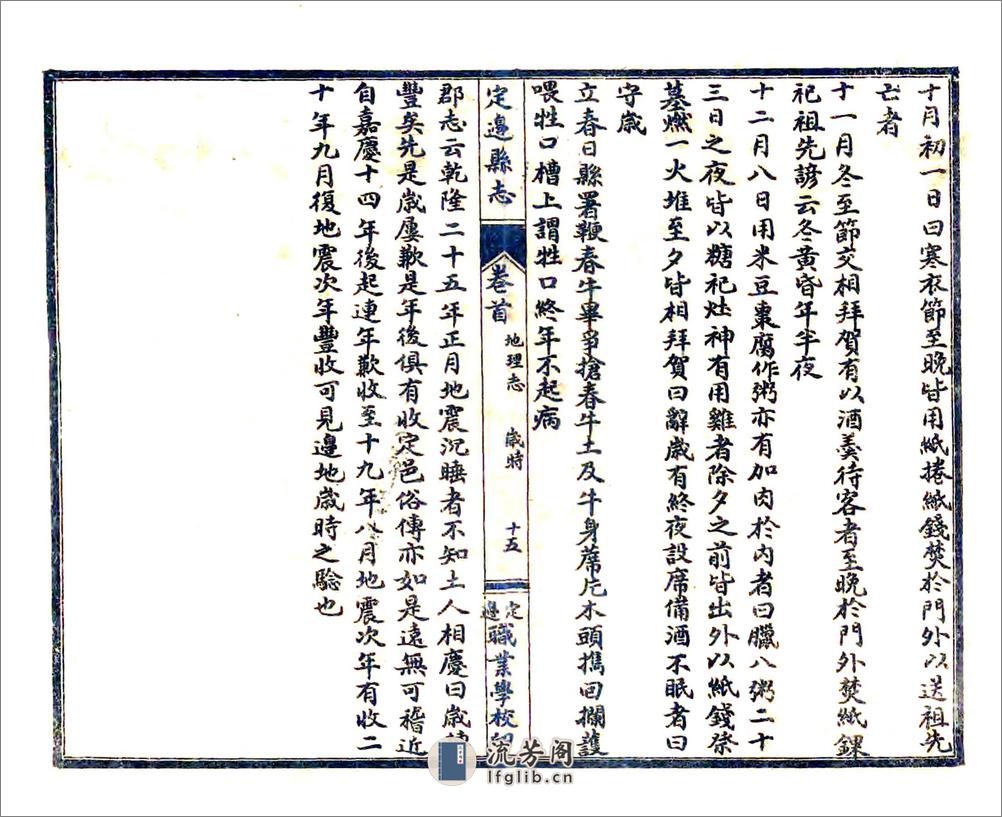 十月初一日曰寒衣節至晚皆用紙捲紙錢焚於門外以送祖先
亡者
十一月冬至節交相拜賀有以酒羹待客者至晚於門外焚紙錁
祀祖先諺云冬黃昏年半夜
十二月八日用米豆棗腐作粥亦有加肉於內者曰臘八粥二十
三日之夜皆以糖祀灶神有用雞者除夕之前皆出外以紙錢祭
墓燃一火堆至夕皆相拜賀曰辭歲有終夜設席備酒不眠者曰
守歲
立春日縣署鞭春牛畢爭搶春牛土及牛身蓆片木頭攜回攔護
喂牲口槽上謂牲口終年不起病
定邊縣志 卷首 地理志 歲時 十五 定邊職業學校印
郡志云乾隆二十五年正月地震沉睡者不知土人相慶曰歲
豐矣先是歲屢歉是年後俱有收定邑俗傳亦如是遠無可稽近
自嘉慶十四年後起連年歉收至十九年八月地震次年有收二
十年九月復地震次年豐收可見邊地歲時之驗也
流芳阁
lfglib.cn